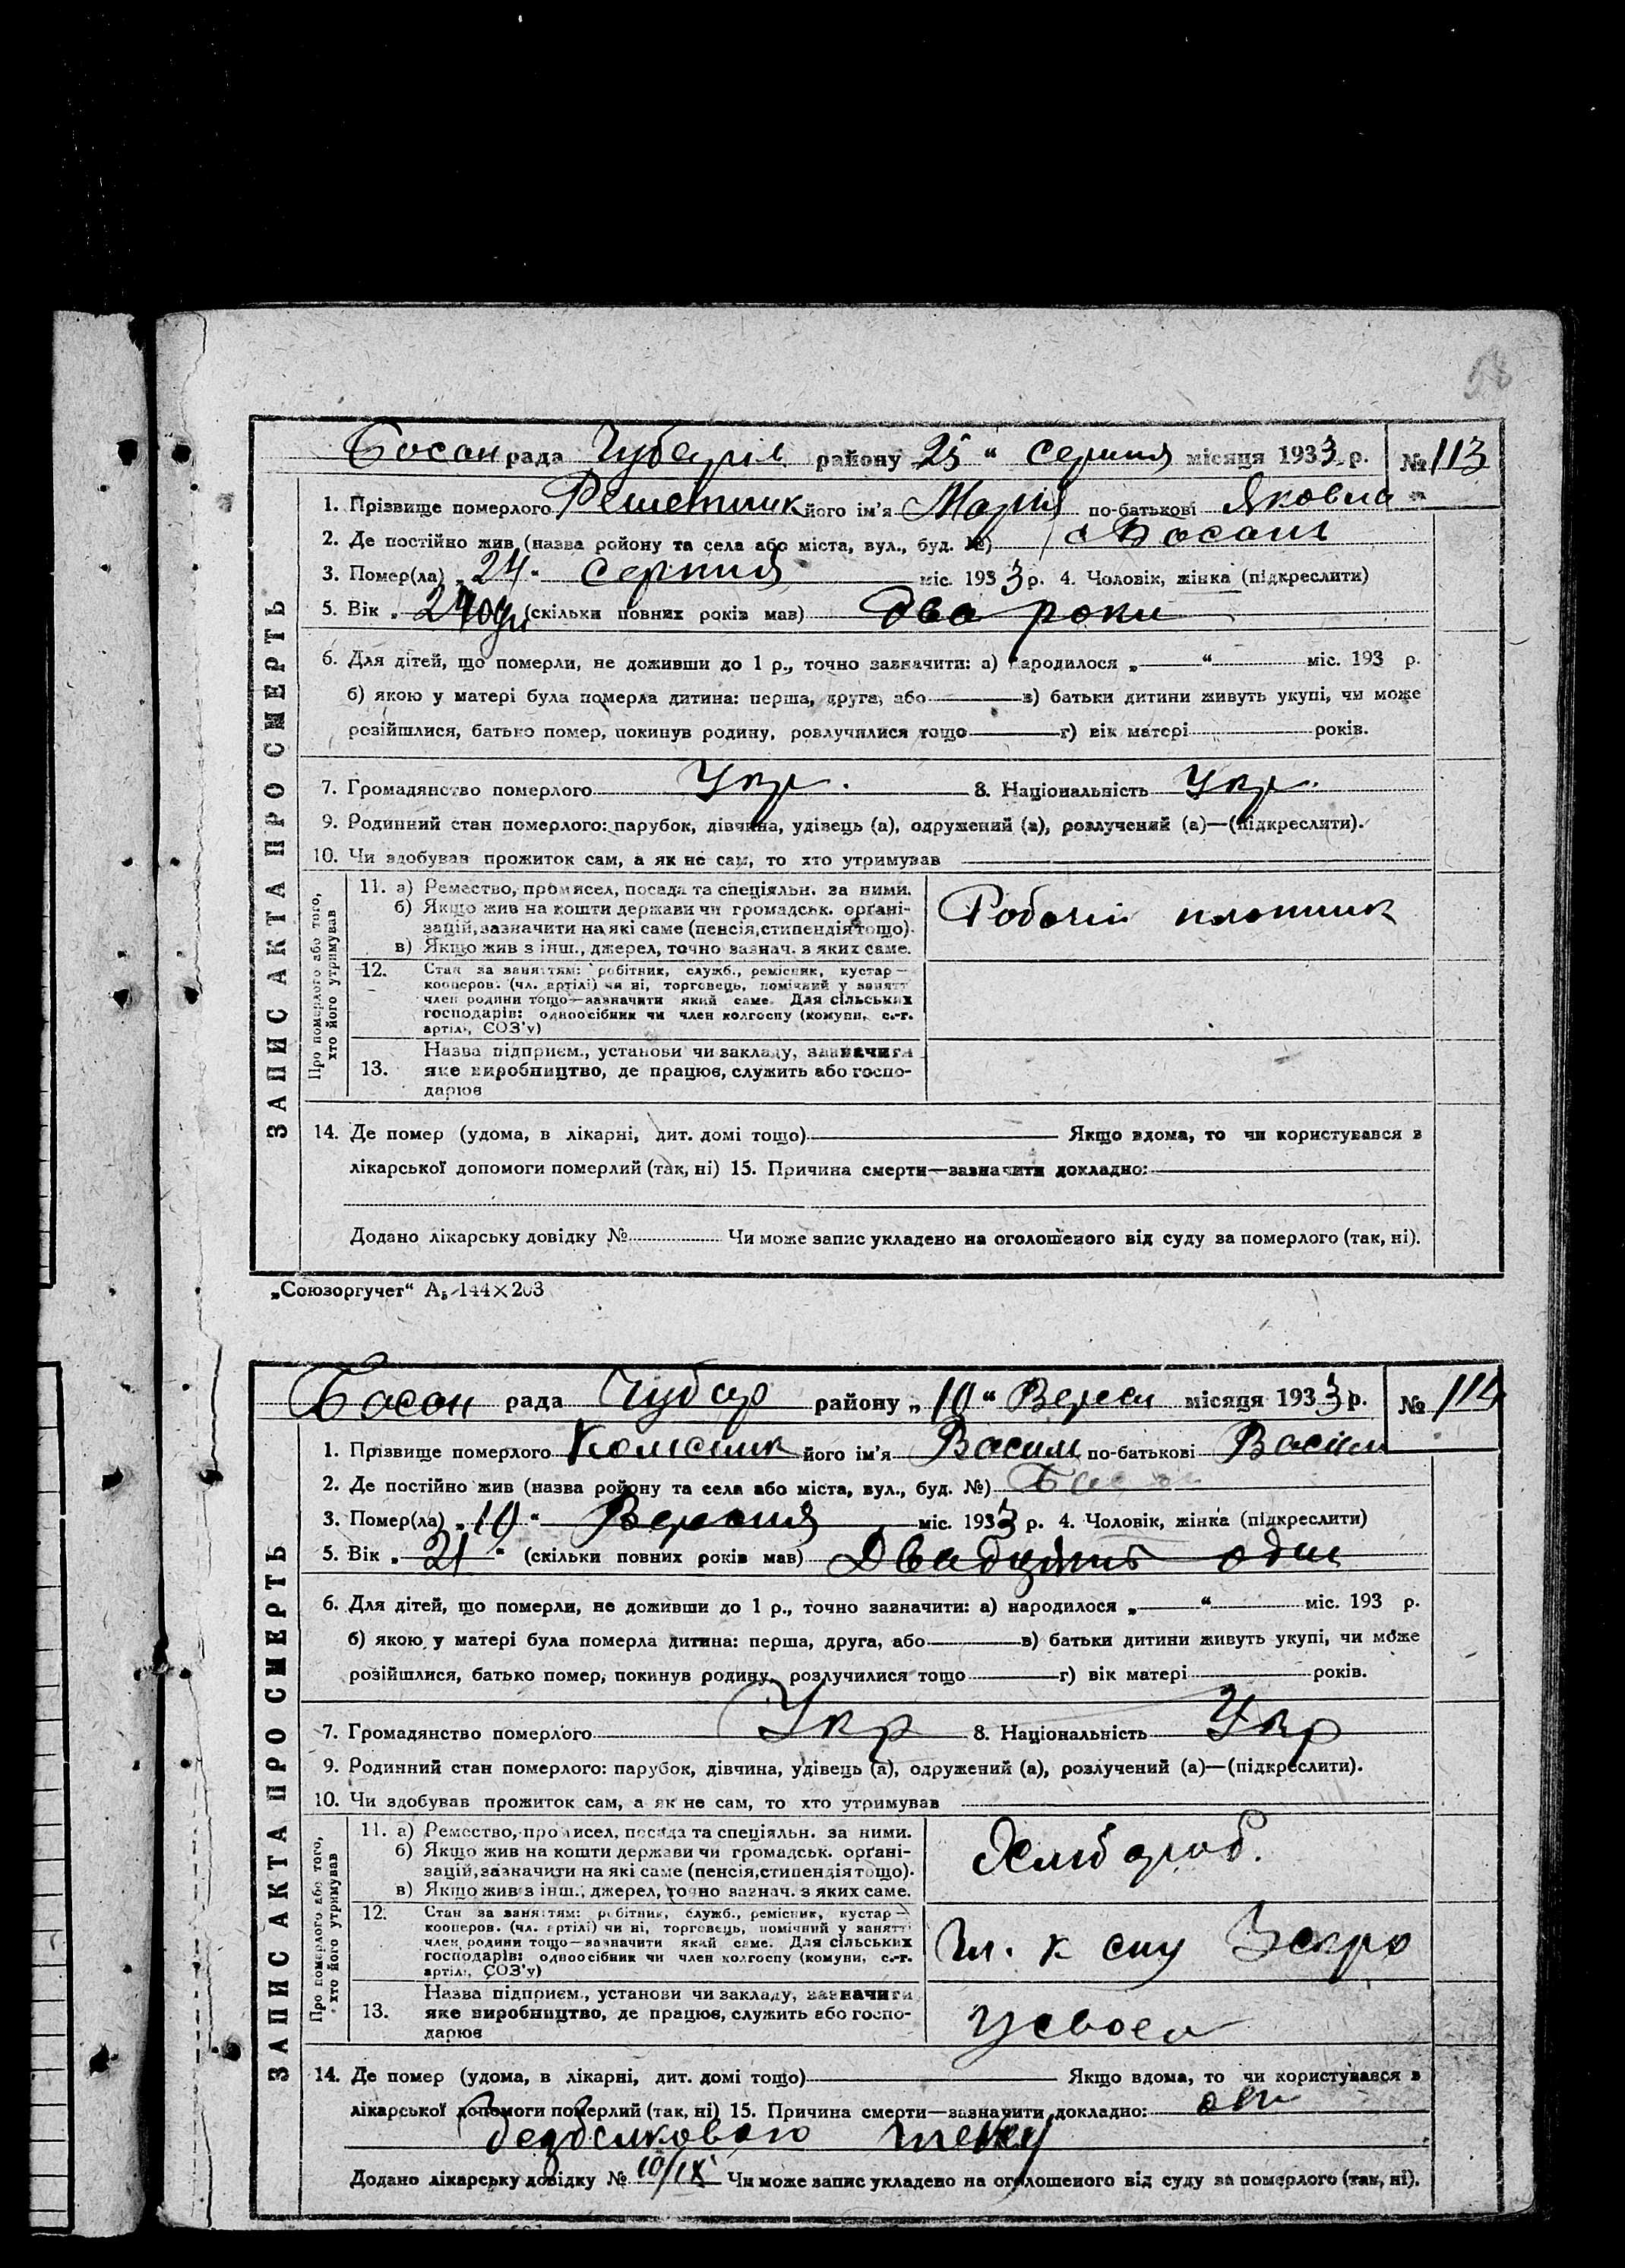 Босан рада Чубарів району 25 " серпня місяця 1933 р. № 113
1. Прізвище померлого Решетник його ім'я Марія по-батькові Яковна
2. Де постійно жив (назва ройону та села або міста, вул., буд. №) с Босань
3. Помер(ла) „ 24 " серпня міс. 1933 р. 4. Чоловік, жінка (підкреслити)
5. Вік „ (скільки повних років мав) два роки
6. Для дітей, що померли, не доживши до 1 р., точно зазначити: а) народилося „ “ міс. 193 р.
б) якою у матері була померла дитина: перша, друга, або в) батьки дитини живуть укупі, чи може
розійшлися, батько помер, покинув родину, розлучилися тощо г) вік матері років.
7. Громадянство померлого Укр. 8. Національність Укр.
9. Родинний стан померлого: парубок, дівчина, удівець (а), одружений (а), розлучений (а)—(підкреслити).
10. Чи здобував прожиток сам, а як не сам, то хто утримував
ЗАПИС АКТА ПРО СМЕРТЬ
Про померлого або того, хто його утримував
11. а) Ремество, промисел, посада та спеціяльн. за ними.
б) Якщо жив на кошти держави чи громадськ. органі-
зацій, зазначити на які саме (пенсія, стипендія тощо).
в) Якщо жив з інш., джерел, точно зазнач. з яких саме.
Робочій плотник
12. Стан за заняттям: робітник, служб., ремісник, кустар—
кооперов. (чл. артілі) чи ні, торговець, помічний у занятт
член родини тощо—зазначити який саме. Для сільських
господарів: одноосібник чи член колгоспу (комуни, с.-г.
артілі, СОЗ'у)
13. Назва підприєм., установи чи закладу, зазначити
яке виробництво, де працює, служить або госпо-
дарює
14. Де помер (удома, в лікарні, дит. домі тощо) Якщо вдома, то чи користувався в
лікарської допомоги померлий (так, ні) 15. Причина смерти—зазначити докладно:
Додано лікарську довідку № Чи може запис укладено на оголошеного від суду за померлого (так, ні).
„Союзоргучет“ А5 144×203
Басан рада Чубар району „ 10 “ Вересн місяця 1933 р. № 114
1. Прізвище померлого його ім'я Васил по-батькові Васіл
2. Де постійно жив (назва ройону та села або міста, вул., буд. №)
3. Помер(ла) „ 10 " Вересня міс. 1933 р. 4. Чоловік, жінка (підкреслити)
5. Вік „ 21 " (скільки повних років мав) Двадцять один
6. Для дітей, що померли, не доживши до 1 р., точно зазначити: а) народилося „ “ міс. 193 р.
б) якою у матері була померла дитина: перша, друга, або в) батьки дитини живуть укупі, чи може
розійшлися, батько помер, покинув родину, розлучилися тощо г) вік матері років.
7. Громадянство померлого Укр 8. Національність Укр
9. Родинний стан померлого: парубок, дівчина, удівець (а), одружений (а), розлучений (а)—(підкреслити).
10. Чи здобував прожиток сам, а як не сам, то хто утримував
ЗАПИС АКТА ПРО СМЕРТЬ
Про померлого або того, хто його утримував
11. а) Ремество, промисел, посада та спеціяльн. за ними.
б) Якщо жив на кошти держави чи громадськ. органі-
зацій, зазначити на які саме (пенсія, стипендія тощо).
в) Якщо жив з інш., джерел, точно зазнач. з яких саме.
12. Стан за заняттям: робітник, служб., ремісник, кустар—
кооперов. (чл. артілі) чи ні, торговець, помічний у занятт
член родини тощо—зазначити який саме. Для сільських
господарів: одноосібник чи член колгоспу (комуни, с.-г.
артілі, СОЗ'у)
Чл. к спу
13. Назва підприєм., установи чи закладу, зазначити
яке виробництво, де працює, служить або госпо-
дарює
14. Де помер (удома, в лікарні, дит. домі тощо) Якщо вдома, то чи користувався в
лікарської допомоги померлий (так, ні) 15. Причина смерти—зазначити докладно: від
безбелкового
Додано лікарську довідку № 10/IX Чи може запис укладено на оголошеного від суду за померлого (так, ні).